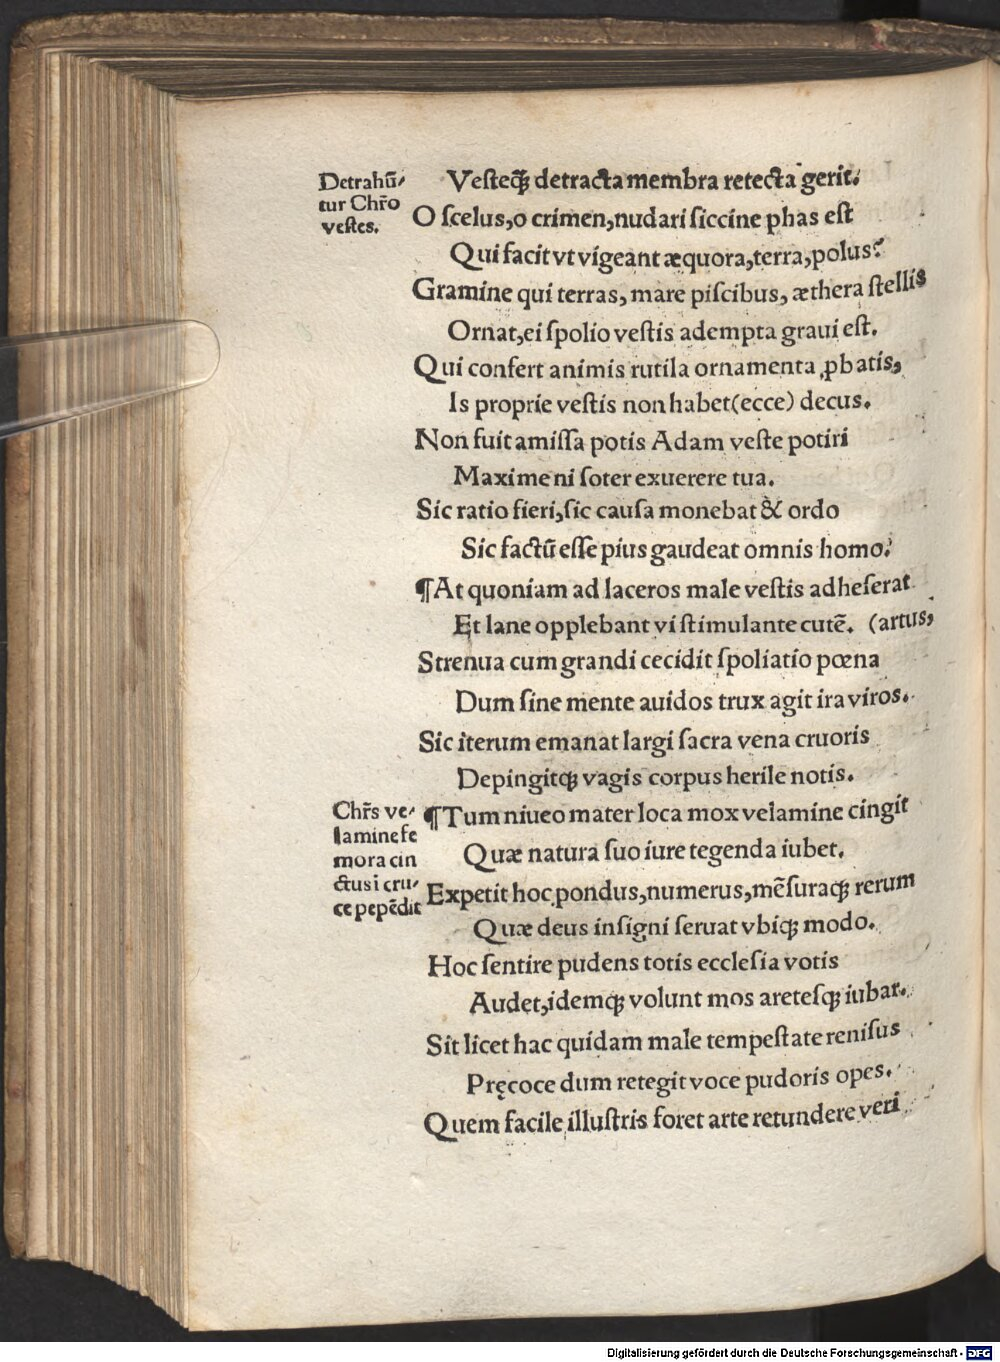 Detrahū-
tur Chr̄o
vestes.
Vesteqꝫ detracta membra retecta gerit.
O scelus,o crimen,nudari siccine phas est
Qui facit vt vigeant æquora,terra,polus?
Gramine qui terras, mare piscibus, æthera stellis
Ornat,ei spolio vestis adempta graui est.
Qui confert animis rutila ornamenta ꝓbatis,
Is proprie vestis non habet(ecce) decus.
Non fuit amissa potis Adam veste potiri
Maxime ni soter exuerere tua.
Sic ratio fieri,sic causa monebat & ordo
Sic factū esse pius gaudeat omnis homo.
¶At quoniam ad laceros male vestis adheserat
Et lane opplebant vi stimulante cutē. (artus,
Strenua cum grandi cecidit spoliatio pœna
Dum sine mente auidos trux agit ira viros.
Sic iterum emanat largi sacra vena cruoris
Depingitqꝫ vagis corpus herile notis.
Chr̄s ve-
lamine fe
mora cin
ctus i cru-
ce pepēdit
¶Tum niueo mater loca mox velamine cingit
Quæ natura suo iure tegenda iubet.
Expetit hoc pondus,numerus,mēsuraqꝫ rerum
Quæ deus insigni seruat vbiqꝫ modo.
Hoc sentire pudens totis ecclesia votis
Audet,idemqꝫ volunt mos aretesqꝫ iubar.
Sit licet hac quidam male tempestate renisus
Pręcoce dum retegit voce pudoris opes.
Quem facile illustris foret arte retundere veri
Digitalisierung gefördert durch die Deutsche Forschungsgemeinschaft - DFG